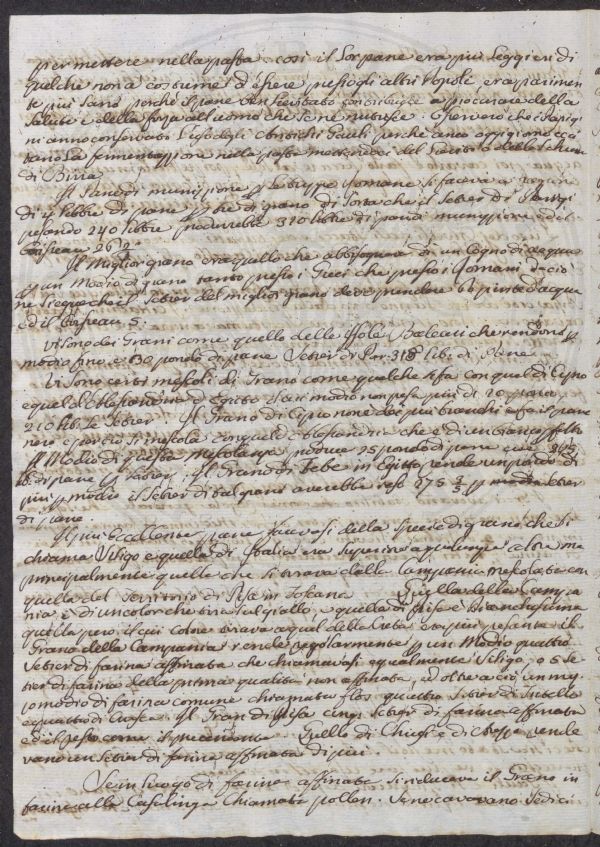 per mettere nella pasta così il lor pane era più leggieri di
quelche non a costume d'essere presso gli altri Popoli, era parimen
te più sano perchè il pane ben fermentato contribuisce a procurare della
salute e della forza all'uomo che se ne nutrisce. E per vero che i Parigi
ni anno conservati l'uso degli antichi Galli perchè anco oggi giorno ecci
tano la fermentazione nella pasta mettendoci del lievito della schiuma
di Birra.
Il Pane di munizione p le truppe Romane si faceva a ragione
di 4 libbre di pane p tre di grano di sorta che il Setier di Parigi
pesando 240 libbre produrrebbe 320 libbre di pane di munizione
Boisseau 26 2/3
Il miglior grano era quello che abbisognava di un Cogno di acqua
p un Modio di grano tanto presso i Greci che presso i Romani da ciò
ne siegue che il Setier del miglior grano deve prendere 60 pinte d'acqua
ed il Boisseau 5:
Vi sono dei Grani come quello delle Isole Baleari che rendono p
modio fino a 30 pondo di pane Setier di Par. 318 lib. di Pane
Vi sono certi mescoli di Grano come qualche si fa con quel di Cipro
e quel d'Alessandria d'Egitto il cui modio non pesa più di 20 pondo
210 lib. le Setier. Il Grano di Cipro non è dei più bianchi e fa il pane
nero e perciò si mescola con quel d'Alessandria che è di un bianco
Il Modio di questa Mescolanza produce 25 pondo di pane
lib. di pane p Setier. Il Grano di Tebe in Egitto rende un pondo di
più p modio il Setier di tal grano averebbe reso 275 2/3 p Setier
di pane.
Il più Eccellente pane facevasi della specie di grano che si
chiama Siligo e quella di Italia era superiore a qualunque altra ma
principalmente quella che si tirava dalla Campania mescolata con
quella del Territorio di Pisa in Toscana Quella della Campa
nia, è di un color che tira sul giallo, e quella di Pisa è Bianchissima
quella però il cui colore tirava a quel della Creta era più pesante il
Grano della Campania rende regolarmente p un Modio quattro
Setier di farina affinata che chiamavasi egualmente Siligo, o 5 Se
tier di farina della prima qualità non affinata, ed oltre a ciò un mez
zo modio di farina comune chiamata flos quattro Setier di Tritello
e quattro di Crusca. Il Gran di Pisa cinq. Setier di farina affinata
ed il resto come il precedente. Quello di Chiusi e di Arezzo rende
vano un Setier di farina affinata di più.
Se in luogo di farina affinata si riduceva il Grano in
farina alla Casalinga Chiamata pollen. Se ne cavavano Sedici